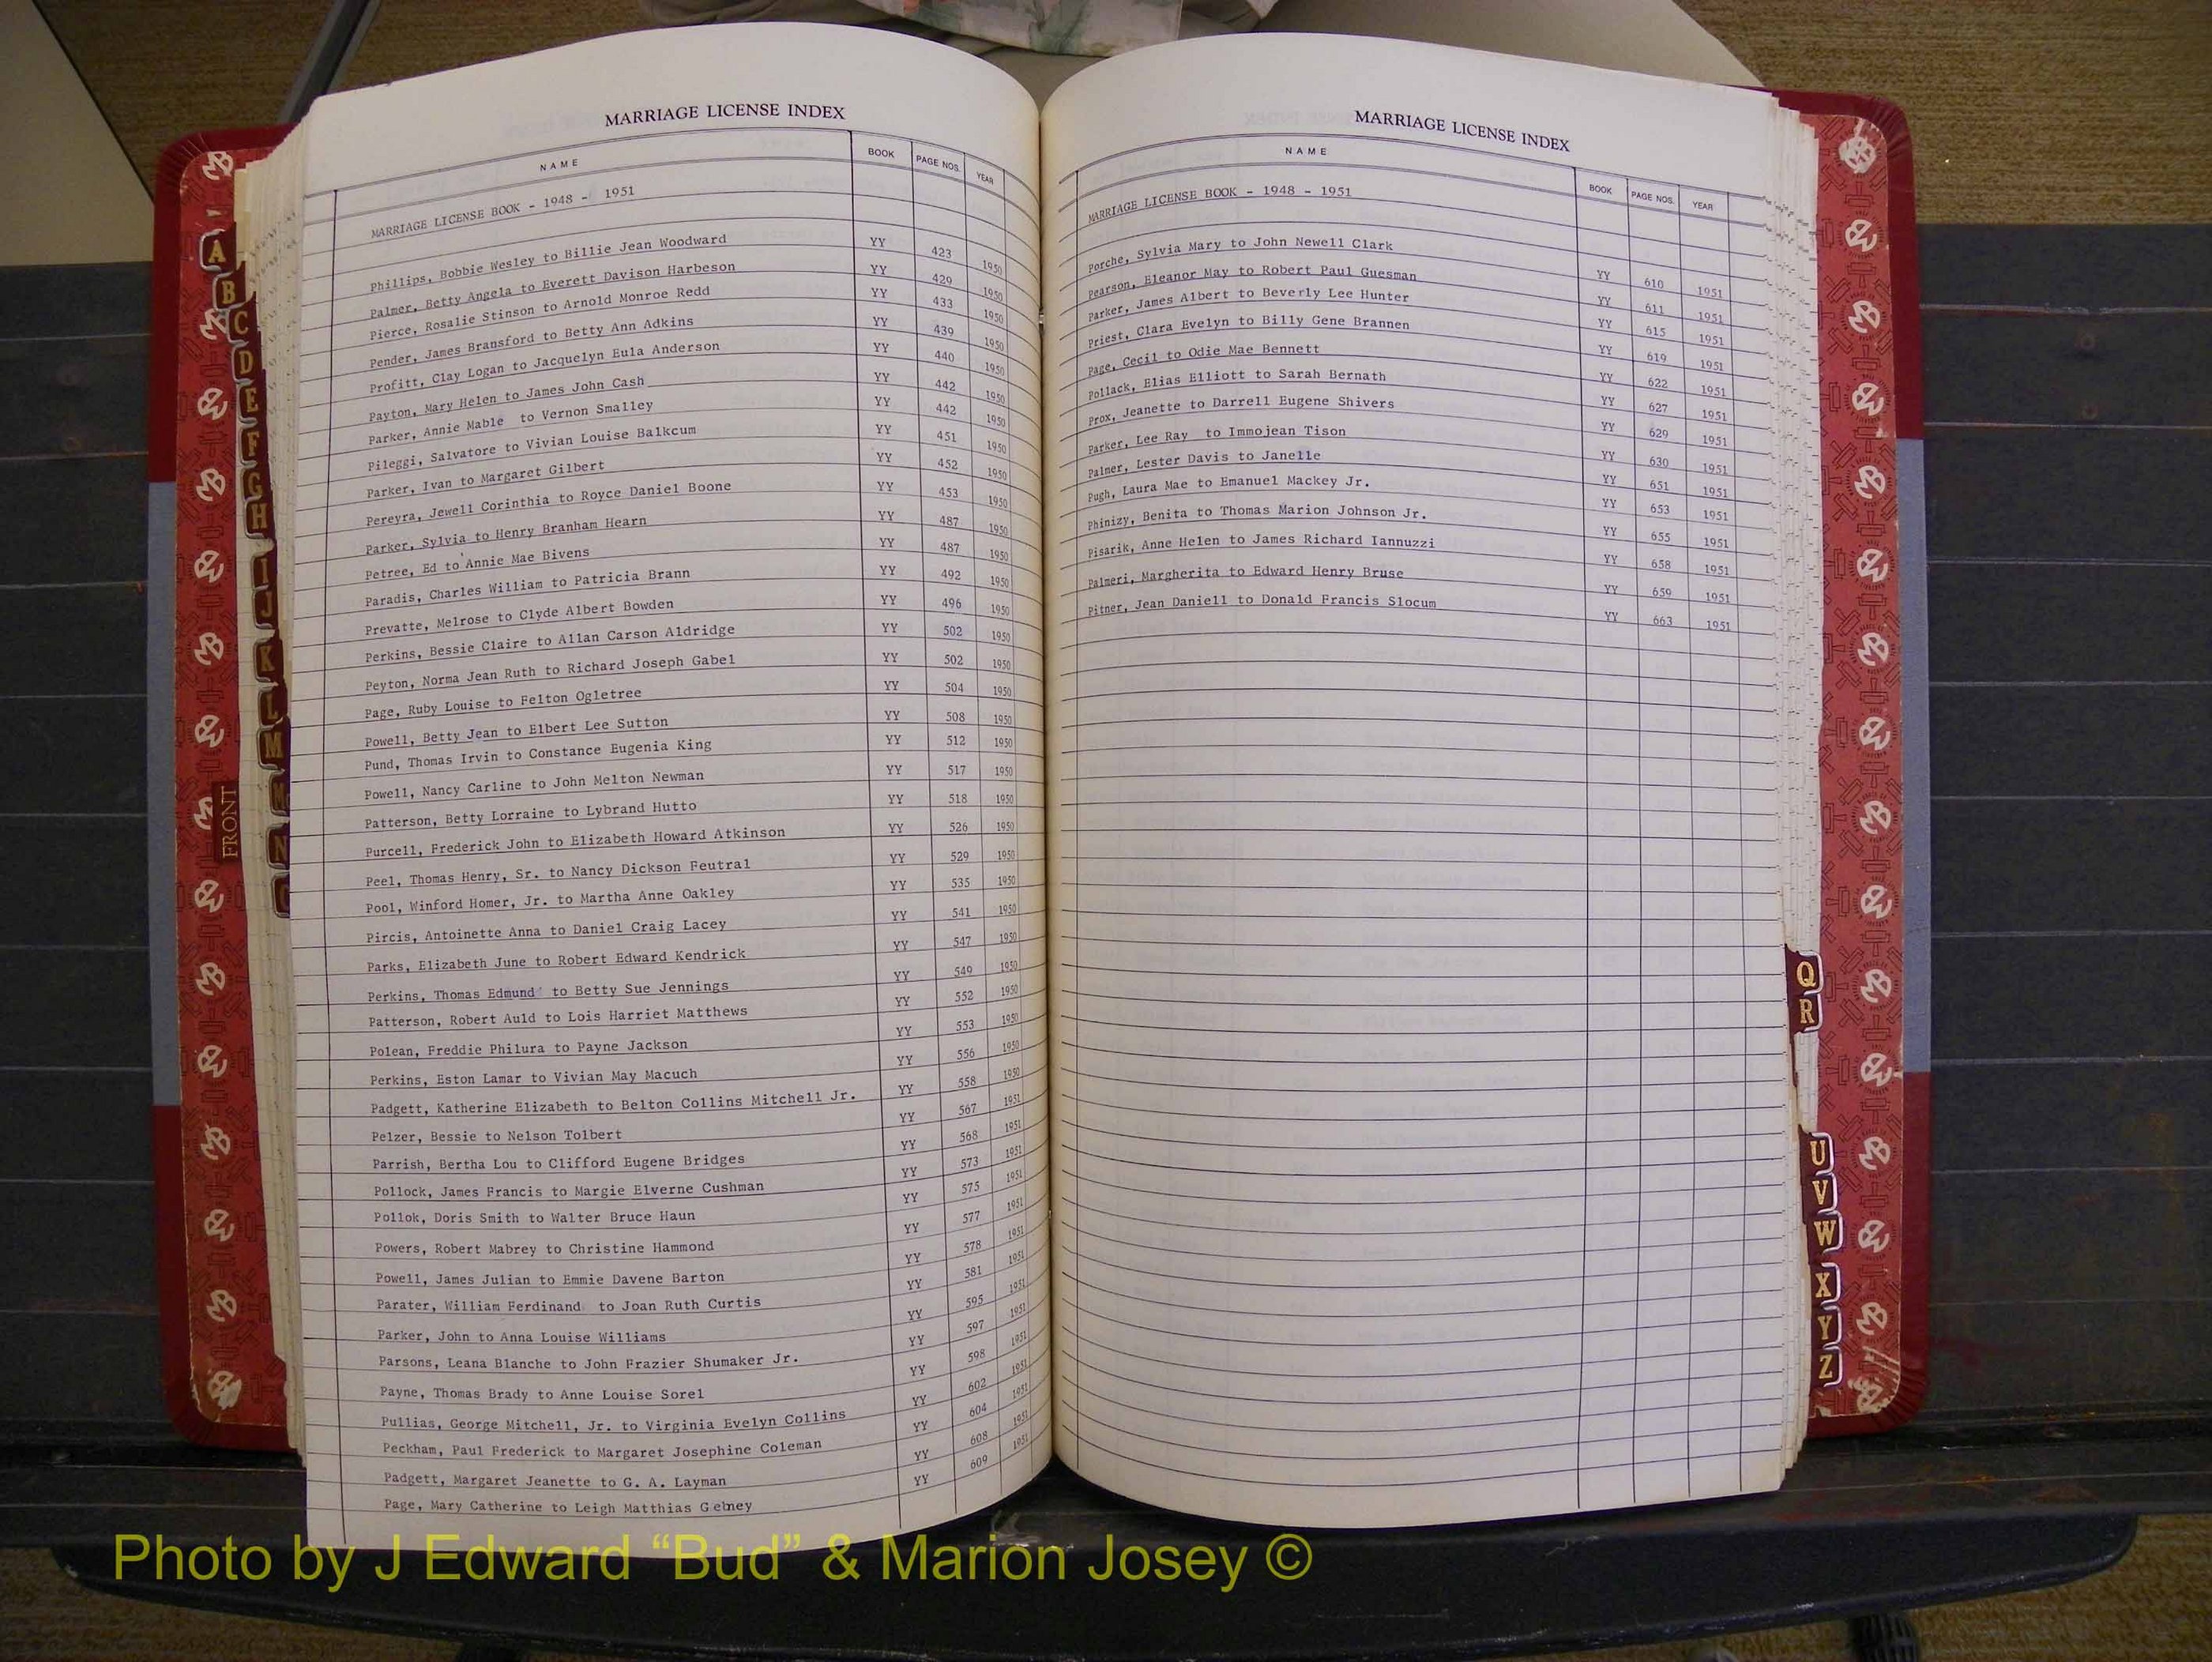 MARRIAGE LICENSE INDEX
NAME BOOK PAGE NOS. YEAR
MARRIAGE LICENSE BOOK - 1948 - 1951
Phillips, Bobbie Wesley to Billie Jean Woodward YY 423 1950
Palmer, Betty Angela to Everett Davison Harbeson YY 429 1950
Pierce, Rosalie Stinson to Arnold Monroe Redd YY 433 1950
Pender, James Bransford to Betty Ann Adkins YY 439 1950
Profitt, Clay Logan to Jacquelyn Eula Anderson YY 440 1950
Payton, Mary Helen to James John Cash YY 442 1950
Parker, Annie Mable to Vernon Smalley YY 442 1950
Pileggi, Salvatore to Vivian Louise Balkcum YY 451 1950
Parker, Ivan to Margaret Gilbert YY 452 1950
Pereyra, Jewell Corinthia to Royce Daniel Boone YY 453 1950
Parker, Sylvia to Henry Branham Hearn YY 487 1950
Petree, Ed to Annie Mae Bivens YY 487 1950
Paradis, Charles William to Patricia Brann YY 492 1950
Prevatte, Melrose to Clyde Albert Bowden YY 496 1950
Perkins, Bessie Claire to Allan Carson Aldridge YY 502 1950
Peyton, Norma Jean Ruth to Richard Joseph Gabel YY 502 1950
Page, Ruby Louise to Felton Ogletree YY 504 1950
Powell, Betty Jean to Elbert Lee Sutton YY 508 1950
Pund, Thomas Irvin to Constance Eugenia King YY 512 1950
Powell, Nancy Carline to John Melton Newman YY 517 1950
Patterson, Betty Lorraine to Lybrand Hutto YY 518 1950
Purcell, Frederick John to Elizabeth Howard Atkinson YY 526 1950
Peel, Thomas Henry, Sr. to Nancy Dickson Feutral YY 529 1950
Pool, Winford Homer, Jr. to Martha Anne Oakley YY 535 1950
Pircis, Antoinette Anna to Daniel Craig Lacey YY 541 1950
Parks, Elizabeth June to Robert Edward Kendrick YY 547 1950
Perkins, Thomas Edmund to Betty Sue Jennings YY 549 1950
Patterson, Robert Auld to Lois Harriet Matthews YY 552 1950
Polean, Freddie Philura to Payne Jackson YY 553 1950
Perkins, Eston Lamar to Vivian May Macuch YY 556 1950
Padgett, Katherine Elizabeth to Belton Collins Mitchell Jr. YY 558 1950
Pelzer, Bessie to Nelson Tolbert YY 567 1951
Parrish, Bertha Lou to Clifford Eugene Bridges YY 568 1951
Pollock, James Francis to Margie Elverne Cushman YY 573 1951
Pollok, Doris Smith to Walter Bruce Haun YY 575 1951
Powers, Robert Mabrey to Christine Hammond YY 577 1951
Powell, James Julian to Emmie Davene Barton YY 578 1951
Parater, William Ferdinand to Joan Ruth Curtis YY 581 1951
Parker, John to Anna Louise Williams YY 595 1951
Parsons, Leana Blanche to John Frazier Shumaker Jr. YY 597 1951
Payne, Thomas Brady to Anne Louise Sorel YY 598 1951
Pullias, George Mitchell, Jr. to Virginia Evelyn Collins YY 602 1951
Peckham, Paul Frederick to Margaret Josephine Coleman YY 604 1951
Padgett, Margaret Jeanette to G. A. Layman YY 608 1951
Page, Mary Catherine to Leigh Matthias Gebney YY 609 1951
MARRIAGE LICENSE INDEX
NAME BOOK PAGE NOS. YEAR
MARRIAGE LICENSE BOOK - 1948 - 1951
Porche, Sylvia Mary to John Newell Clark YY 610 1951
Pearson, Eleanor May to Robert Paul Guesman YY 611 1951
Parker, James Albert to Beverly Lee Hunter YY 615 1951
Priest, Clara Evelyn to Billy Gene Brannen YY 619 1951
Page, Cecil to Odie Mae Bennett YY 622 1951
Pollack, Elias Elliott to Sarah Bernath YY 627 1951
Prox, Jeanette to Darrell Eugene Shivers YY 629 1951
Parker, Lee Ray to Immojean Tison YY 630 1951
Palmer, Lester Davis to Janelle YY 651 1951
Pugh, Laura Mae to Emanuel Mackey Jr. YY 653 1951
Phinizy, Benita to Thomas Marion Johnson Jr. YY 655 1951
Pisarik, Anne Helen to James Richard Iannuzzi YY 658 1951
Palmeri, Margherita to Edward Henry Bruse YY 659 1951
Pitner, Jean Daniell to Donald Francis Slocum YY 663 1951
A
B
C
D
E
F
G
H
I
J
K
L
M
N
FRONT
Q
R
U
V
W
X
Y
Z
Photo by J Edward “Bud” & Marion Josey ©